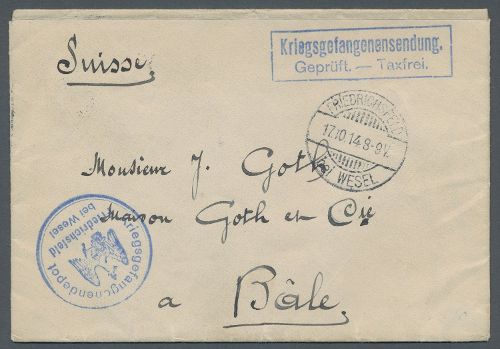 Suisse.
Kriegsgefangenensendung.
Geprüft. — Taxfrei.
FRIEDRICHSFELD
17.10.14.8-9V.
(BZ. WESEL
Monsieur J. Goth
Maison Goth et Cie
Kriegsgefangenendepot
Friedrichsfeld
bei Wesel
a Bâle.